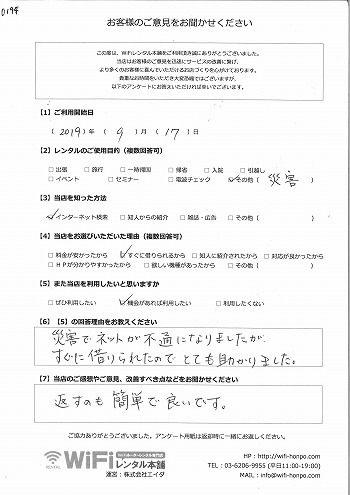 0194
お客様のご意見をお聞かせください
この度は、WiFiレンタル本舗をご利用頂き誠にありがとうございました。
当店はお客様のご意見を迅速にサービスの改善に繋げ、
より多くのお客様に喜んでいただけるお店づくりを心がけております。
貴重なお時間をいただき大変恐縮ではございますが、
以下のアンケートにお答えいただければ幸いでございます。
【1】ご利用開始日
( 2019 ) 年 ( 9 ) 月 ( 17 ) 日
【2】レンタルのご使用目的（複数回答可）
□ 出張 □ 旅行 □ 一時帰国 □ 帰省 □ 入院 □ 引越し
□ イベント □ セミナー □ 電波チェック ☑ その他（ 災害 ）
【3】当店を知った方法
☑ インターネット検索 □ 知人からの紹介 □ 雑誌・広告 □ その他（ ）
【4】当店をお選びいただいた理由（複数回答可）
□ 料金が安かったから ☑ すぐに借りられるから □ 知人に紹介されたから □ 対応が良かったから
□ ＨＰが分かりやすかったから □ 欲しい機種があったから □ その他（ ）
【5】また当店を利用したいと思いますか
□ ぜひ利用したい ☑ 機会があれば利用したい □ 利用したくない
【6】（5）の回答理由をお教えください
災害でネットが不通になりましたが、
すぐに借りられたのでとても助かりました。
【7】当店のご感想やご意見、改善すべき点などをお聞かせください
返すのも簡単で良いです。
ご協力ありがとうございました。アンケート用紙は返却時に一緒にお返しください。
WiFiルーターレンタル専門店
RENTAL WiFi レンタル本舗
運営：株式会社エイダ
HP：http://wifi-honpo.com
TEL：03-6206-9955 (平日11:00-19:00)
MAIL：info@wifi-honpo.com